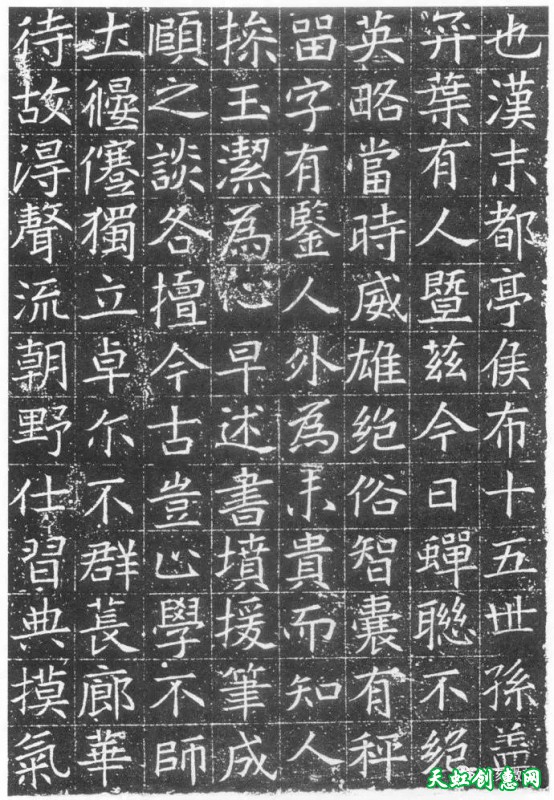 也漢末都亭侯布十五世孫盖
弈葉有人暨茲今日蟬聯不絕
英略當時威雄絕俗智囊有秤
留字有鑒人外為未貴而知人
操玉潔為心早述書墳援筆成
頋之談各擅今古豈止學不師
士偃蹇獨立卓尒不群萇廊華
待故得聲流朝野仕習典摸氣
天虹创意网